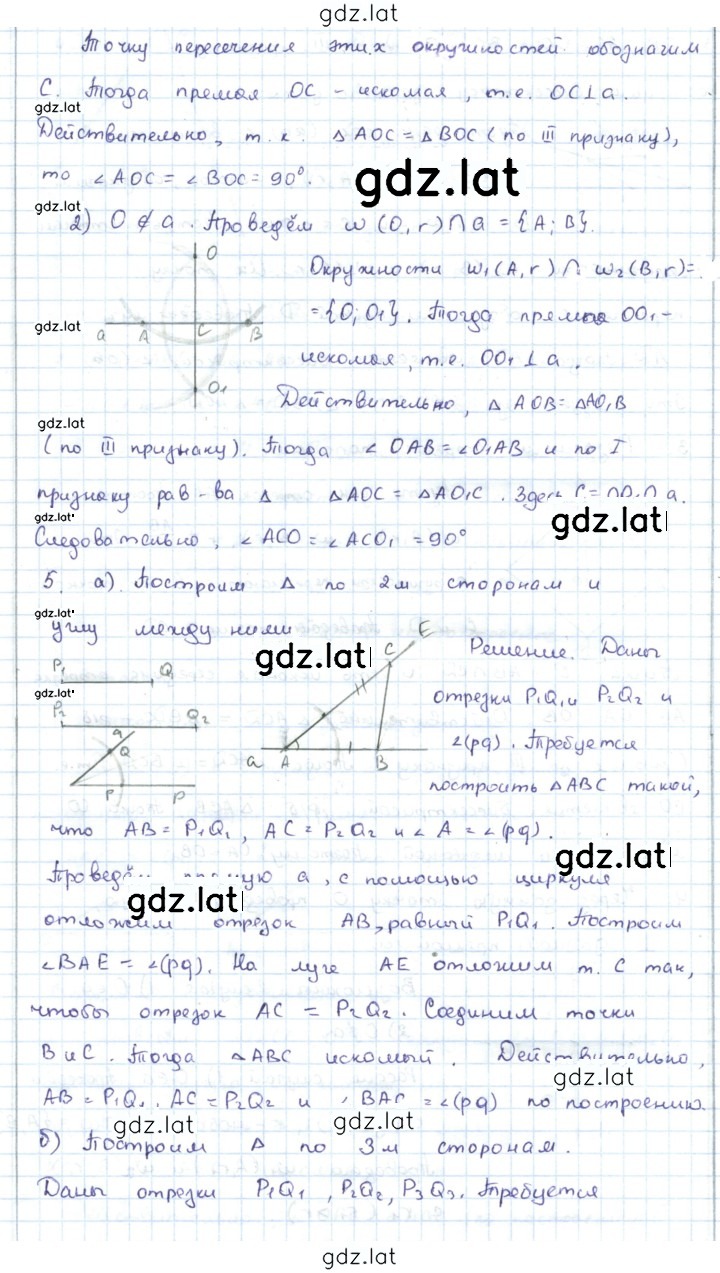 gdz.lat
Точку пересечения этих окружностей обозначим
С. Тогда прямая ОС - искомая, т.е. ОС⊥а.
gdz.lat
Действительно, т.к. △AOC = △BOC (по III признаку),
то ∠AOC = ∠BOC = 90°.
gdz.lat
gdz.lat
2) O ∉ a. Проведём w (O, r) ∩ a = {A; B}.
O
Окружности w₁(A, r) ∩ w₂(B, r) =
gdz.lat
a A C B
= {O; O₁}. Тогда прямая OO₁ -
искомая, т.е. OO₁ ⊥ a.
O₁
Действительно, △ AOB = △AO₁B
gdz.lat
(по III признаку). Тогда ∠ OAB = ∠O₁AB и по I
признаку рав-ва △ △AOC = △AO₁C. Здесь C = a.
gdz.lat
gdz.lat
Следовательно, ∠ ACO = ∠ ACO₁ = 90°
5. а) Построим △ по 2м сторонам и
gdz.lat
углу между ними
gdz.lat
P₁ Q
C E
Решение. Даны
gdz.lat
отрезки P₁Q₁ и P₂Q₂ и
P₂ Q₂
q
Q
∠(pq). Требуется
a A B
P p
построить △ABC такой,
что AB = P₁Q₁, AC = P₂Q₂ и ∠ A = ∠(pq).
gdz.lat
a, с помощью циркуля
gdz.lat
отложим отрезок AB, равный P₁Q₁. Построим
∠BAE = ∠(pq). На луче AE отложим т. C так,
чтобы отрезок AC = P₂Q₂. Соединим точки
B и C. Тогда △ABC искомый. Действительно,
gdz.lat
AB = P₁Q₁. AC = P₂Q₂ и ∠BAC = ∠(pq) по построению.
gdz.lat gdz.lat
б) Построим △ по 3м сторонам.
Даны отрезки P₁Q₁, P₂Q₂, P₃Q₃. Требуется
gdz.lat